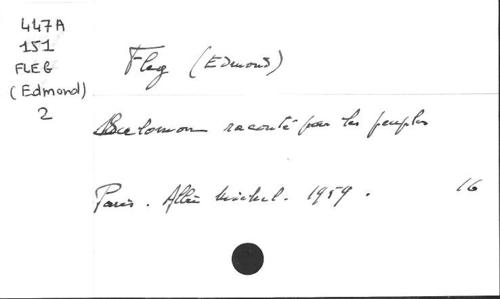 447A
151
FLEG
(Edmond)
2
Fleg (Edmond)
Salomon raconté par les peuples
Paris. Albin Michel. 1959. 16